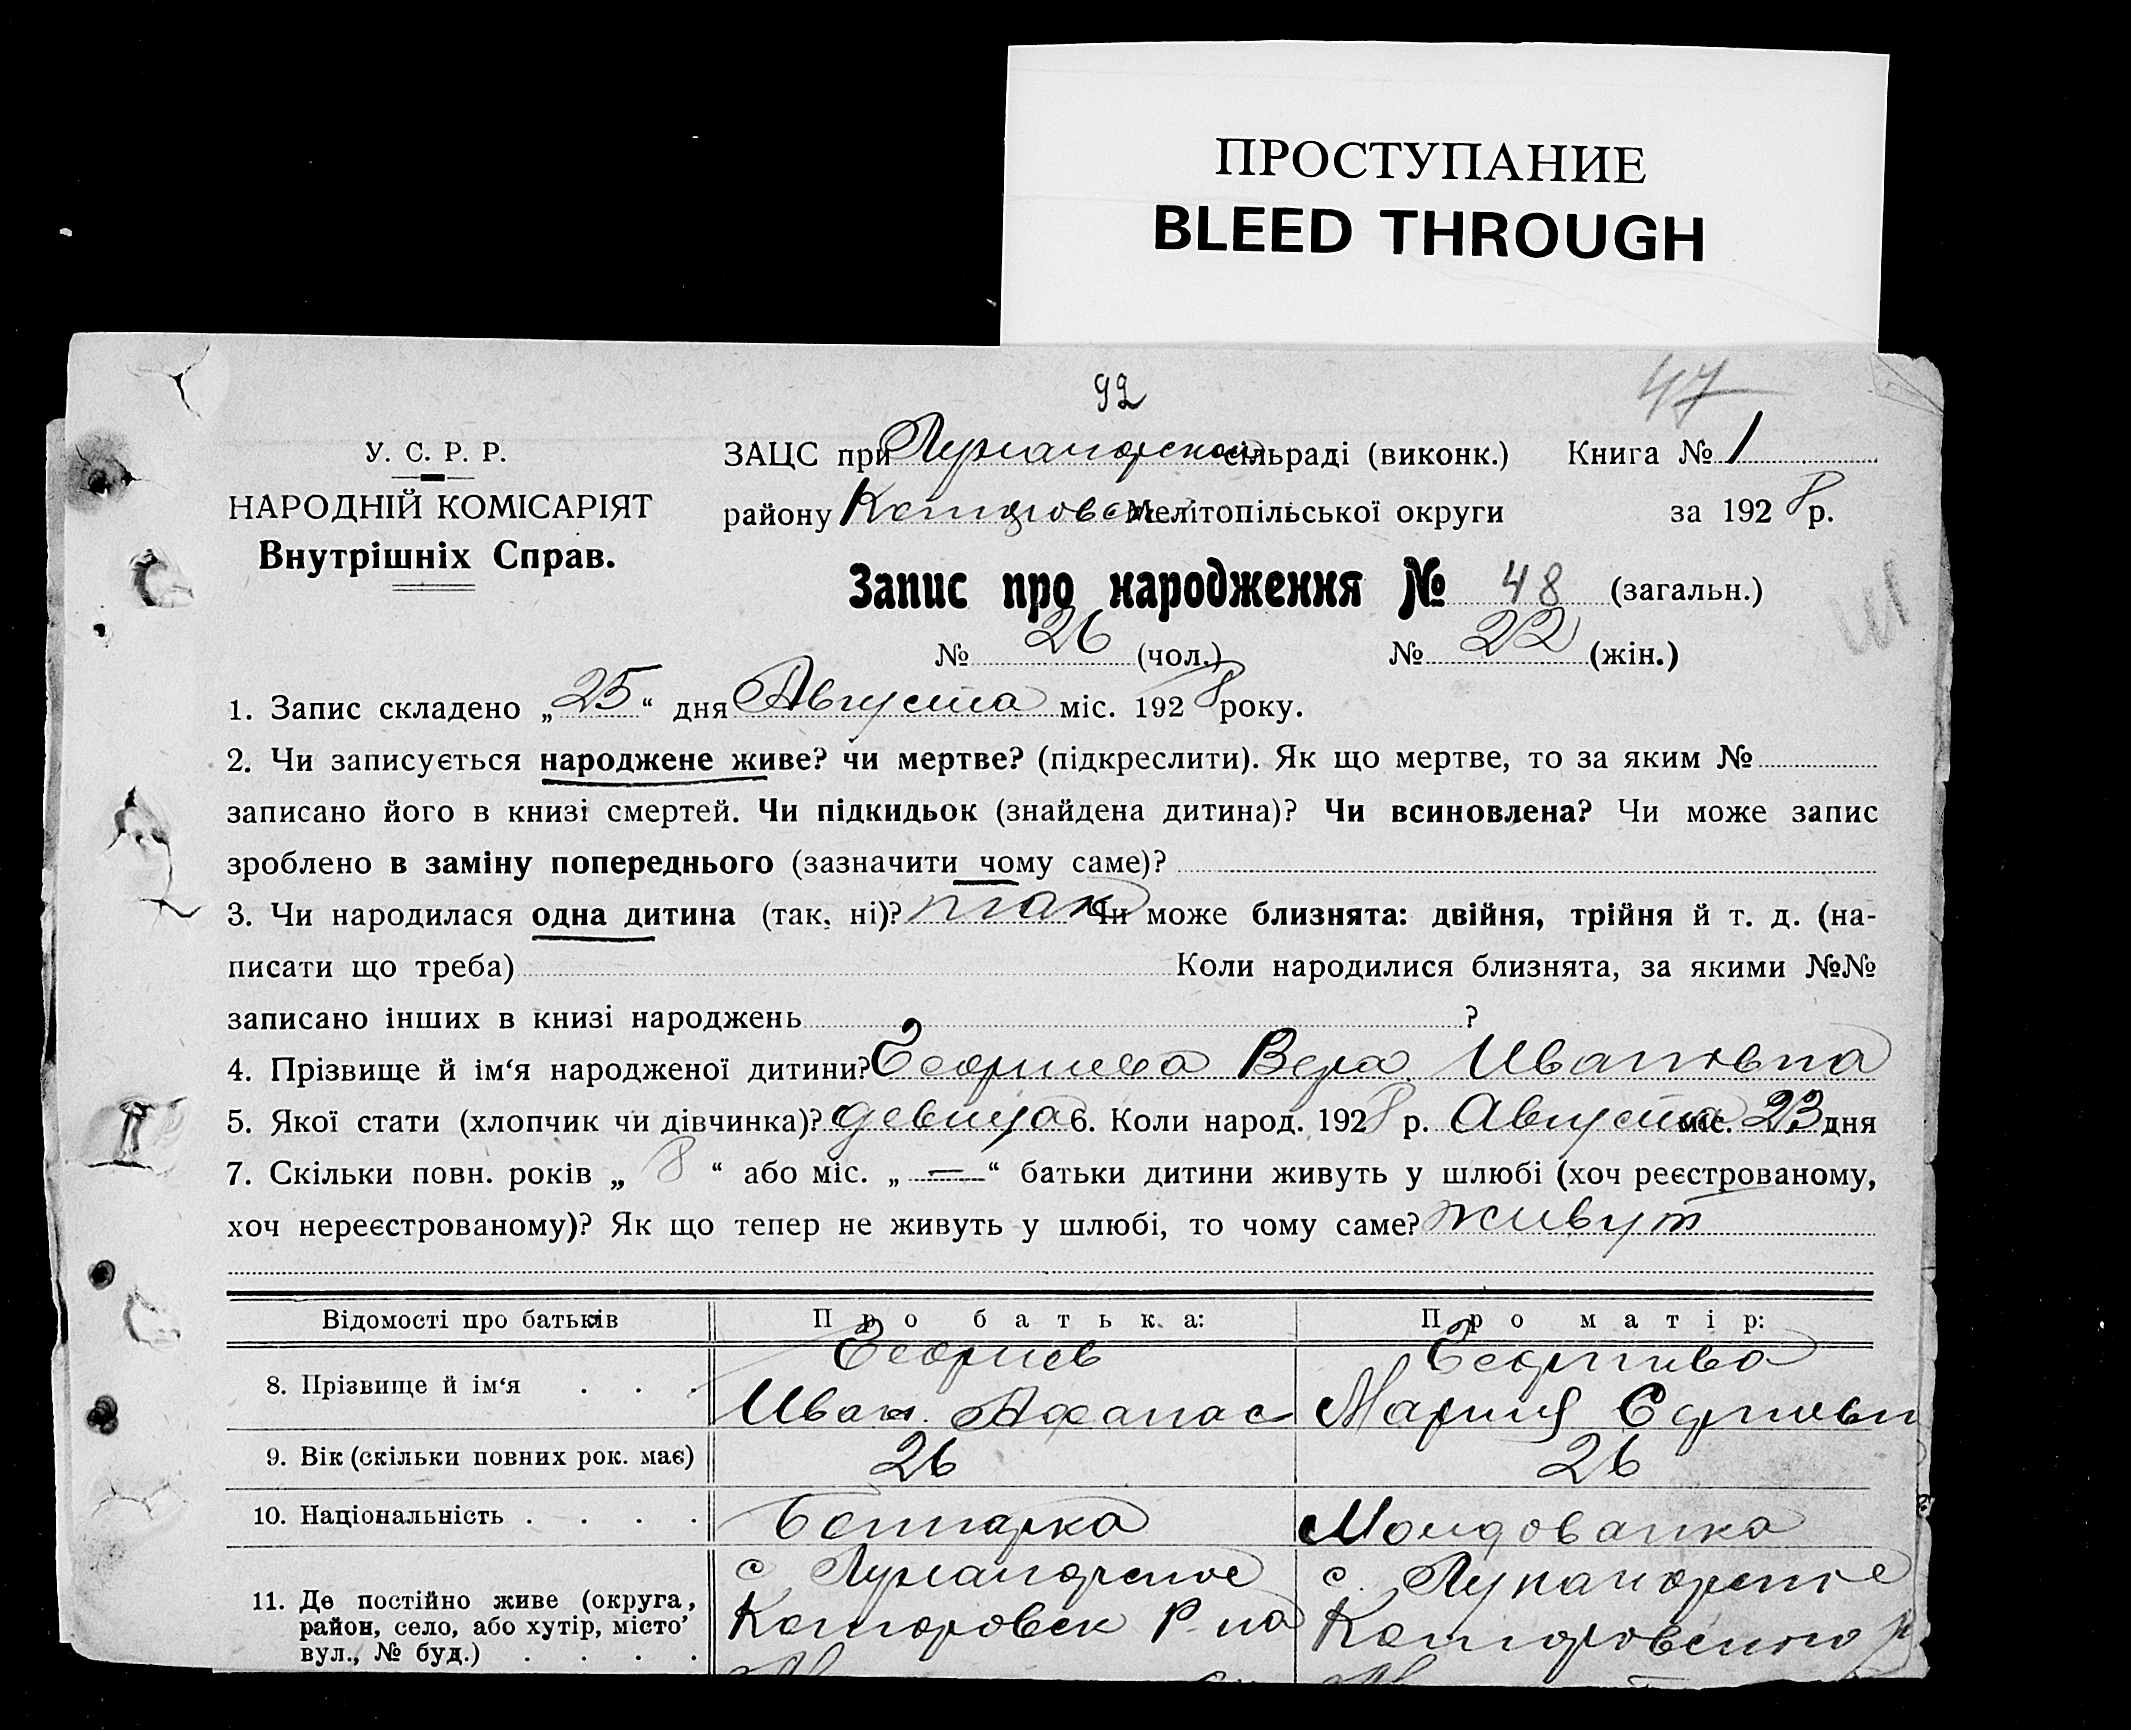 ПРОСТУПАНИЕ
BLEED THROUGH
92
47
У. С. Р. Р.
НАРОДНІЙ КОМІСАРІЯТ
Внутрішніх Справ.
ЗАЦС при сільраді (виконк.) Книга № 1
району Мелітопільської округи за 1928 р.
Запис про народження № 48 (загальн.)
№ 26 (чол.) № 22 (жін.)
1. Запис складено „25“ дня Августа міс. 1928 року.
2. Чи записується народжене живе? чи мертве? (підкреслити). Як що мертве, то за яким №
записано його в книзі смертей. Чи підкидьок (знайдена дитина)? Чи всиновлена? Чи може запис
зроблено в заміну попереднього (зазначити чому саме)?
3. Чи народилася одна дитина (так, ні)? так Чи може близнята: двійня, трійня й т. д. (на-
писати що треба) Коли народилися близнята, за якими №№
записано інших в книзі народжень ?
4. Прізвище й ім‘я народженої дитини? Вера Ивановна
5. Якої стати (хлопчик чи дівчинка)? девица 6. Коли народ. 1928 р. Августа міс. 23 дня
7. Скільки повн. років „ 8 “ або міс. „ = “ батьки дитини живуть у шлюбі (хоч реєстрованому,
хоч нереєстрованому)? Як що тепер не живуть у шлюбі, то чому саме? живут
Відомості про батьків Про батька: Про матір:
8. Прізвище й ім‘я . . .
Иван Афанас Мария
9. Вік (скільки повних рок. має) 26 26
10. Національність . . . .
11. Де постійно живе (округа,
район, село, або хутір, місто
вул., № буд.) . . . .